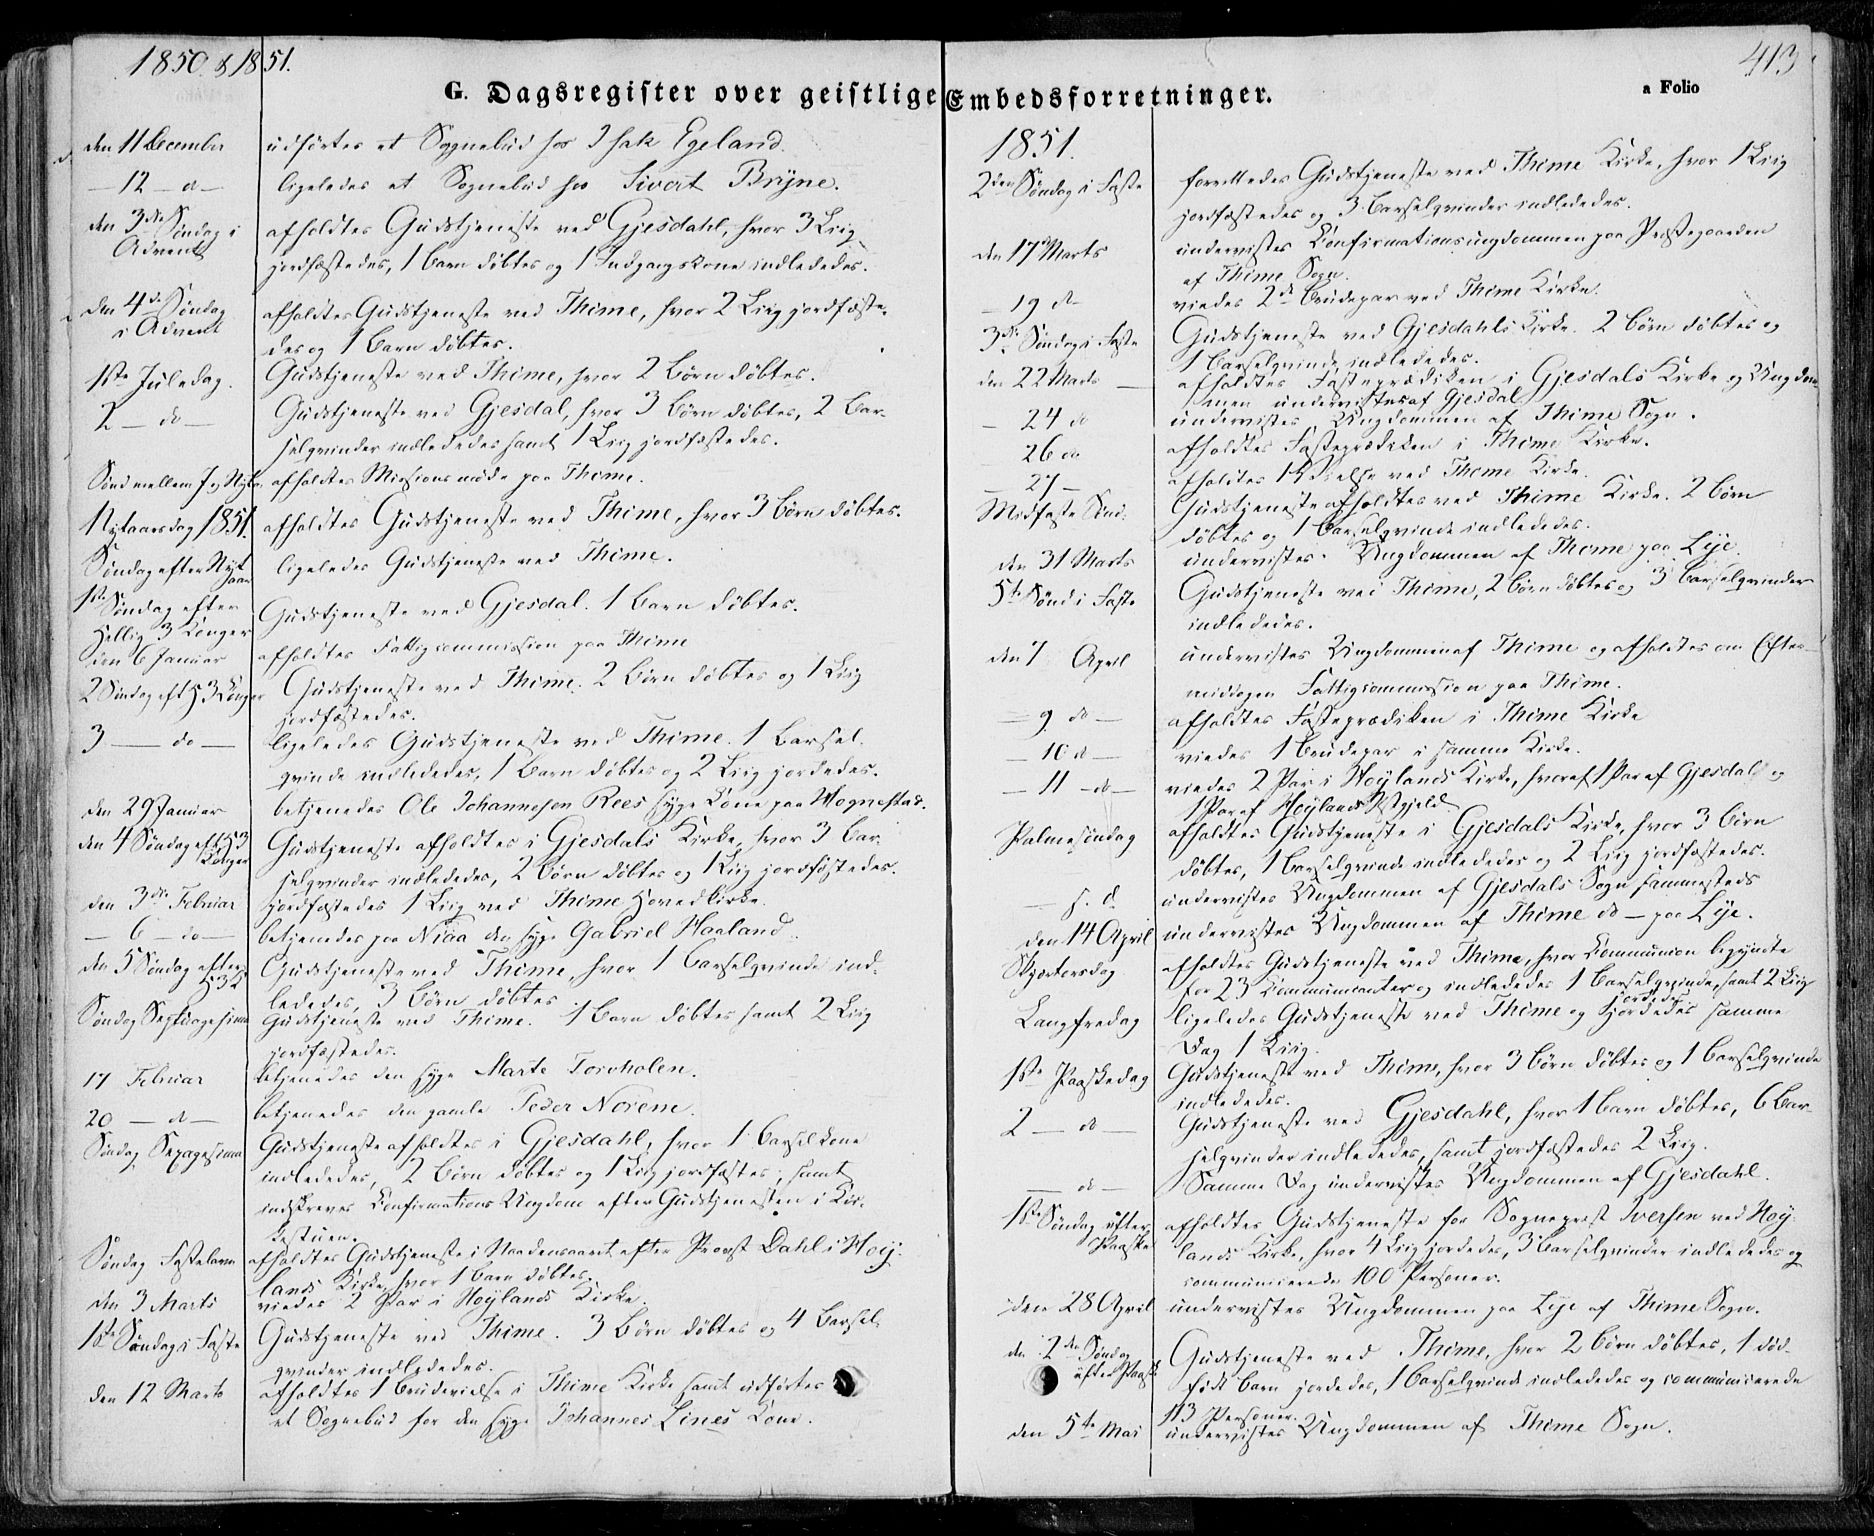 1850 & 1851.
413
G. Dagsregister over geistlige Embedsforretninger.
a Folio
den 11 December udførtes et Sognebud hos Isak Egeland.
— 12 — d — ligeledes et Sognebud hos Sivert Bryne.
den 3die Søndag i afholdtes Gudstjeneste ved Gjesdahl, hvor 3 Liig
Advent jordfæstedes, 1 Barn døbtes og 1 Indgangskone indlededes.
den 4de Søndag afholdtes Gudstjeneste ved Thime, hvor 2 Liig jordfæste-
i Advent des og 1 Barn døbtes.
1ste Juledag. Gudstjeneste ved Thime, hvor 2 Børn døbtes.
2 — do — Gudstjeneste ved Gjesdal, hvor 3 Børn døbtes, 2 Bar-
selqvinder indlededes samt 1 Liig jordfæstedes.
Sønd mellem J og Nytr afholdtes Missionsmøde paa Thime.
Nytaarsdag 1851. afholdtes Gudstjeneste ved Thime, hvor 3 Børn døbtes.
Søndag efter Nyt ligeledes Gudstjeneste ved Thime.
aar
1ste Søndag efter Gudstjeneste ved Gjesdal. 1 Barn døbtes.
Hellig 3 Konger
den 6 Januar afholdtes Fattigcommission paa Thime
2 Søndag eft H 3 Konger Gudstjeneste ved Thime. 2 Børn døbtes og 1 Liig
jordfæstedes.
3 — do — ligeledes Gudstjeneste ved Thime. 1 Barsel-
qvinde indlededes, 1 Barn døbtes og 2 Liig jordedes.
den 29 Januar betjenedes Ole Johannesen Rees syge Kone paa Hognestad.
den 4 Søndag eft H 3 Gudstjeneste afholdtes i Gjesdals Kirke, hvor 3 Bar-
Konger selqvinder indlededes, 2 Børn døbtes og 1 Liig jordfæstedes.
den 3die Februar jordfæstedes 1 Liig ved Thime Hovedkirke.
— 6 — do — betjenedes paa Niaa den syge Gabriel Haaland.
den 5 Søndag efter Gudstjeneste ved Thime, hvor 1 Barselqvinde ind-
H 3 K ledes, 3 Børn døbtes.
Søndag Septuagesima Gudstjeneste ved Thime. 1 Barn døbtes samt 2 Liig
jordfæstedes.
17 Februar betjenedes den syge Marte Torvholen.
20 — d — betjenedes den gamle Peder Norem.
Søndag Sexagesima Gudstjeneste afholdtes i Gjesdahl, hvor 1 Barselkone
indlededes, 2 Børn døbtes og 1 Liig jordfæstes; samt
indskreves Confirmations Ungdom efter Gudstjenesten i Kir-
kestuen.
Søndag Fastelavn afholdtes Gudstjeneste i Naadensaaret efter Provst Dahl i Høy-
lands Kirke, hvor 1 Barn døbtes.
den 3 Marts viedes 2 Par i Høylands Kirke.
1ste Søndag i Faste Gudstjeneste ved Thime. 3 Børn døbtes og 4 Barsel-
qvinder indlededes.
den 12 Marts afholdtes 1 Brudevielse i Thime Kirke samt udførtes
et Sognebud for den syge Johannes Lines Kone.
1851.
2den Søndag i Faste forrettedes Gudstjeneste ved Thime Kirke, hvor 1 Liig
jordfæstedes og 3 Barselqvinder indlededes.
den 17 Marts undervistes Confirmationsungdommen paa Præstegaarden
af Thime Sogn.
— 19 d — viedes 2de Brudepar ved Thime Kirke.
3die Søndag i Faste Gudstjeneste ved Gjesdahls Kirke. 2 Børn døbtes og
1 Barselqvinde indlededes.
den 22 Marts — afholdtes Fasteprædiken i Gjesdals Kirke og Ungdom-
men undervistes af Gjesdal
— 24 do undervistes Ungdommen af Thime Sogn.
— 26 do afholdtes Fasteprædiken i Thime Kirke.
— 27 — afholdtes 1 Vielse ved Thime Kirke.
Midfaste Sønd: Gudstjeneste afholdtes ved Thime Kirke. 2 Børn
døbtes og 1 Barselqvinde indlededes.
den 31 Marts undervistes Ungdommen af Thime paa Lye.
5te Sønd i Faste Gudstjeneste ved Thime, 2 Børn døbtes og 3 Barselqvinder
indlededes.
den 7 April undervistes Ungdommen af Thime og afholdtes om Efter-
middagen Fattigcommission paa Thime.
— 9 do — afholdtes Fasteprædiken i Thime Kirke
— 10 d — viedes 1 Brudepar i samme Kirke.
— 11 — do — viedes 2 Par i Høylands Kirke, hvoraf 1 Par af Gjesdal og
1 Par af Høylands Pstgjeld
Palmesøndag afholdtes Gudstjeneste i Gjesdals Kirke, hvor 3 Børn
døbtes, 1 Barselqvinde indlededes og 2 Liig jordfæstedes.
— s. d. undervistes Ungdommen af Gjesdals Sogn sammesteds
den 14 April undervistes Ungdommen af Thime do — paa Lye.
Skjertorsdag afholdtes Gudstjeneste ved Thime, hvor Communion begyndte
for 23 Communicanter og indlededes 1 Barselqvinde, samt 2 Liig
jordedes
Langfredag ligeledes Gudstjeneste ved Thime og jordedes samme
Dag 1 Liig.
1ste Paaskedag Gudstjeneste ved Thime, hvor 3 Børn døbtes og 1 Barselqvinde
indlededes.
2 — do — Gudstjeneste ved Gjesdahl, hvor 1 Barn døbtes, 6 Bar-
selqvinder indlededes, samt jordfæstedes 2 Liig.
— d — Samme Dag undervistes Ungdommen af Gjesdahl.
1ste Søndag efter afholdtes Gudstjeneste for Sognepræst Iversen ved Høy-
Paaske lands Kirke, hvor 4 Liig jordedes, 3 Barselqvinder indlededes og
communicerede 100 Personer.
den 28 April undervistes Ungdommen paa Lye af Thime Sogn.
den 2den Søndag Gudstjeneste ved Thime, hvor 2 Børn døbtes, 1 død-
efter Paaske født Barn jordedes, 1 Barselqvinde indlededes og communicerede
113 Personer.
den 5te Mai undervistes Ungdommen af Thime Sogn.